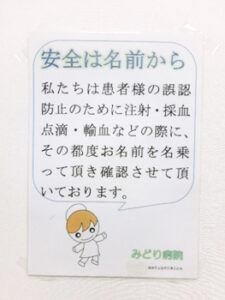 安全は名前から
私たちは患者様の誤認
防止のために注射・採血
点滴・輸血などの際に、
その都度お名前を名乗
って頂き確認させて頂
いております。
みどり病院